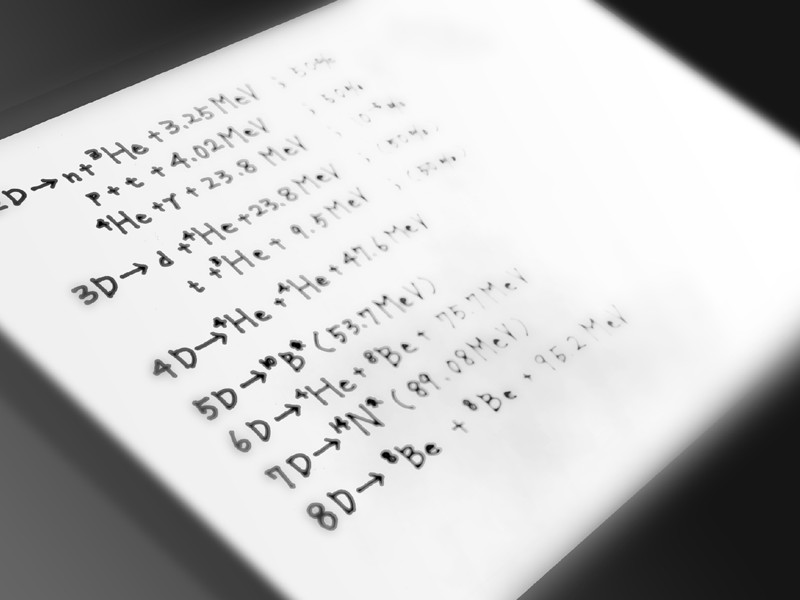 2D→n+³He+3.25MeV ; 50%
p+t+4.02MeV ; 50%
⁴He+γ+23.8 MeV ; 10⁻⁶%
3D→d+⁴He+23.8MeV ; (50%)
t+³He+9.5MeV ; (50%)
4D→⁴He+⁴He+47.6MeV
5D→¹⁰B* (53.7MeV)
6D→⁴He+⁸Be+75.7MeV
7D→¹⁴N* (89.08MeV)
8D→⁸Be+⁸Be+95.2MeV